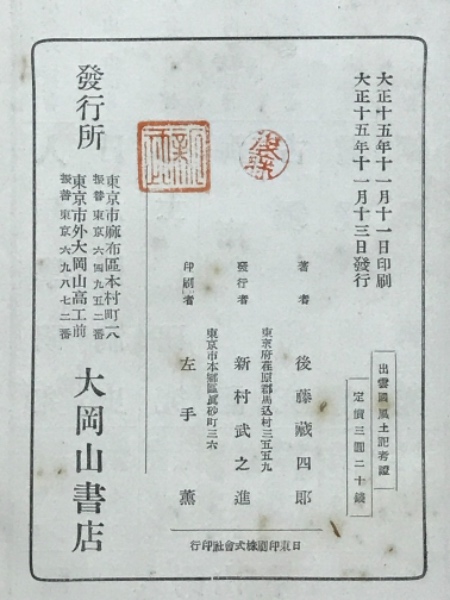 大正十五年十一月十一日印刷
大正十五年十一月十三日發行
出雲國風土記考證
定價三圓二十錢
著者　後藤藏四郎
東京府荏原郡馬込村三五五九
發行者　新村武之進
東京市本鄉區眞砂町三六
印刷者　左手薰
日東印刷株式會社印行
發行所
東京市麻布區本村町一八
振替東京六四九五二番
東京市外大岡山高工前
振替東京六九八七二番
大岡山書店